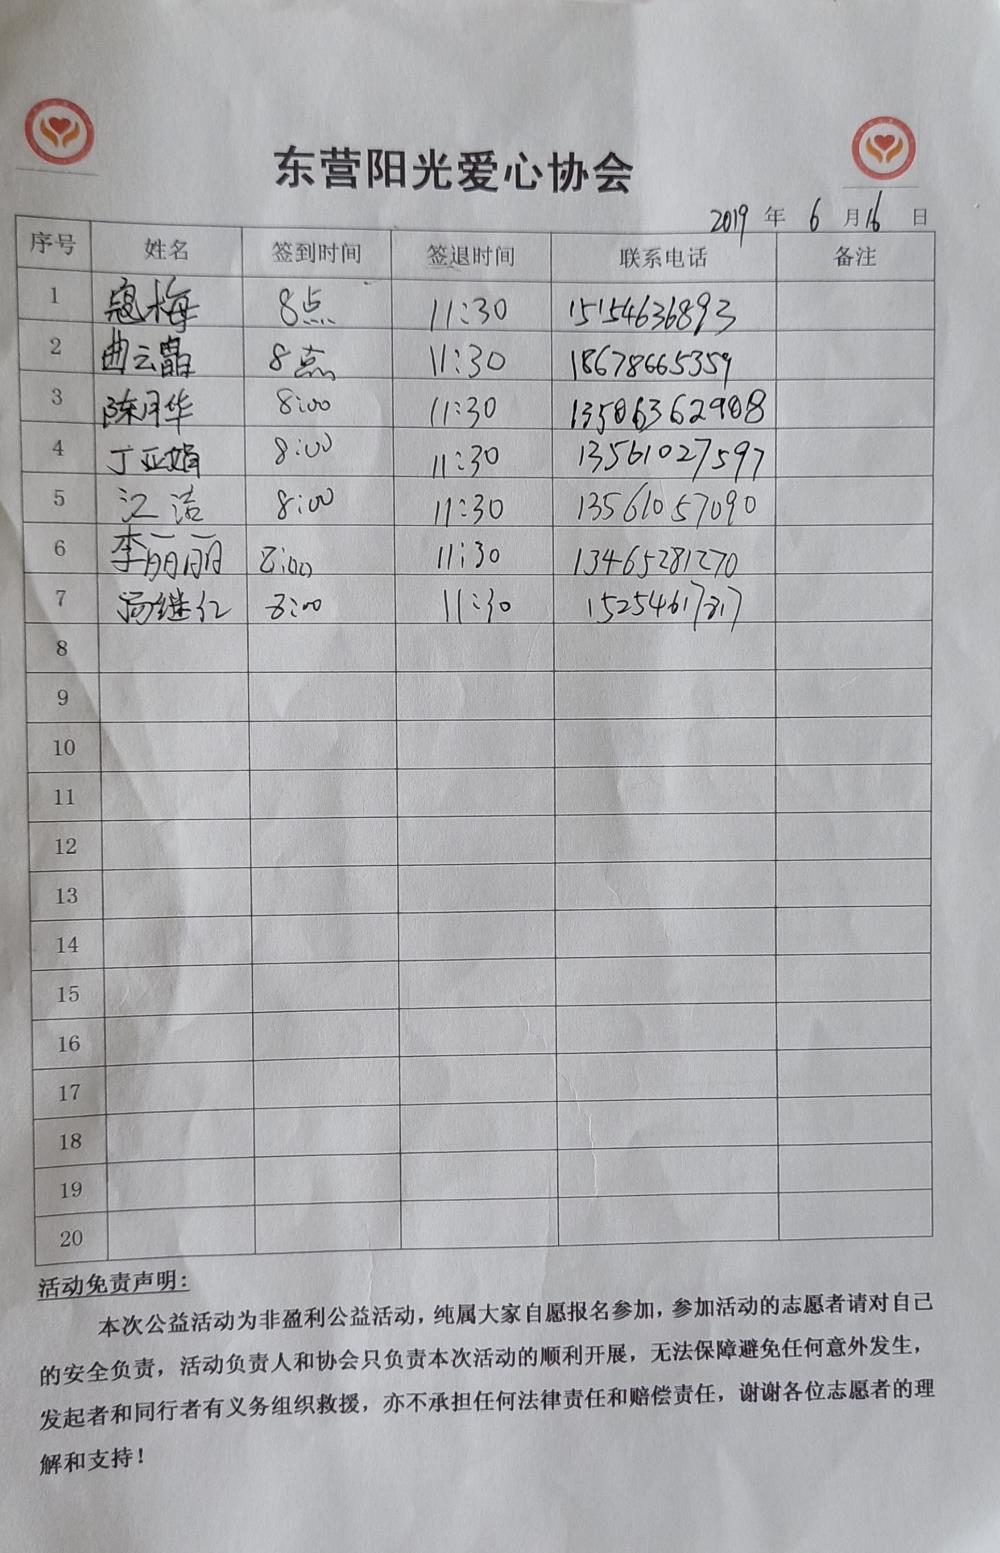 东营阳光爱心协会
2019 年 6 月 16 日
序号 姓名 签到时间 签退时间 联系电话 备注
1 寇梅 8点 11:30 15154636893
2 曲云晶 8点 11:30 18678665359
3 陈月华 8:00 11:30 13586362908
4 丁亚娟 8:00 11:30 13561027597
5 江洁 8:00 11:30 13561057090
6 李丽丽 8:00 11:30 13465281270
7 继红 8:00 11:30
8
9
10
11
12
13
14
15
16
17
18
19
20
活动免责声明:
本次公益活动为非盈利公益活动，纯属大家自愿报名参加，参加活动的志愿者请对自己
的安全负责，活动负责人和协会只负责本次活动的顺利开展，无法保障避免任何意外发生，
发起者和同行者有义务组织救援，亦不承担任何法律责任和赔偿责任，谢谢各位志愿者的理
解和支持！